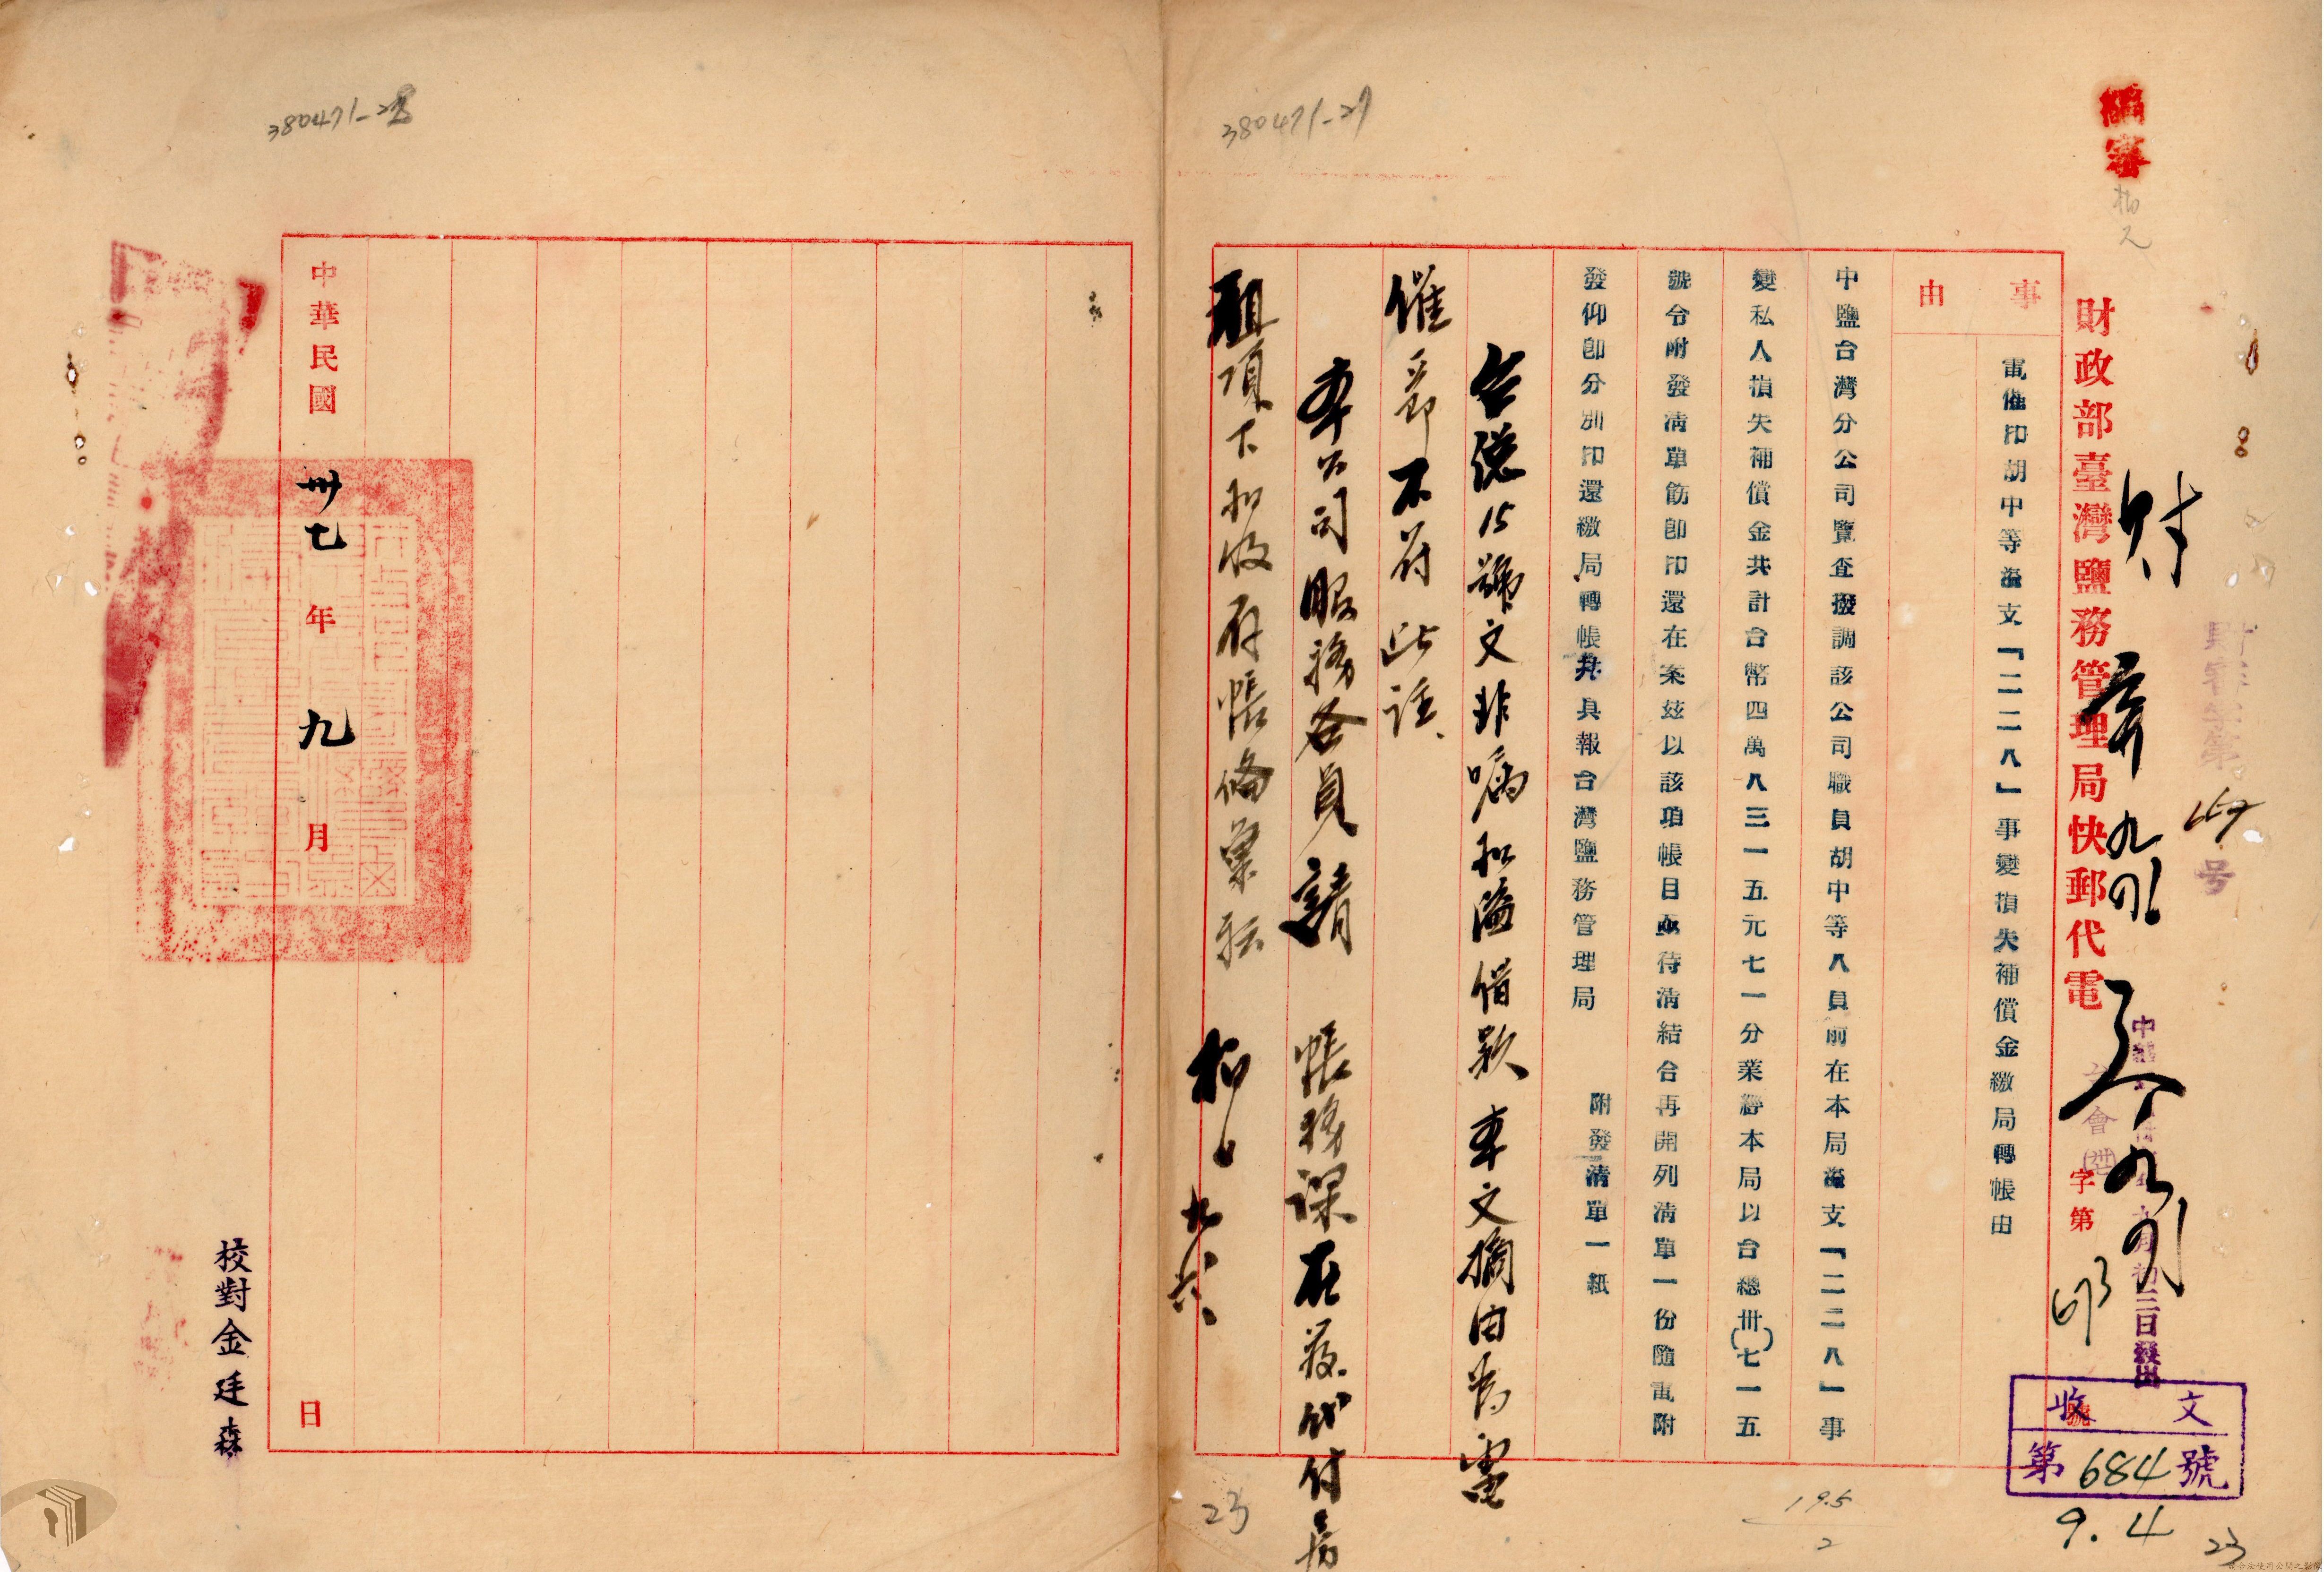 380471-27
財政部臺灣鹽務管理局快郵代電
字第
號
收文
第684號
9.4
事由
電催印胡中等溢支「二二八」事變損失補償金繳局轉帳由
中鹽台灣分公司覽查撥調該公司職員胡中等八員前在本局溢支「二二八」事
變私人損失補償金共計台幣四萬八三一五元七一分業經本局以台總卅(七)一五
號令附發清單飭卽印還在案茲以該項帳目亟待清結合再開列清單一份隨電附
發仰卽分別印還繳局轉帳幷具報台灣鹽務管理局 附發清單一紙
台總15號文非囑扣溢借款本文摘由為電
催
不符此註
本公司服務各員請 帳務課在薪代付房
租項下扣收存帳備彙轉
19.5
2
23
23
380471-28
中華民國卅七年九月 日
校對金廷森